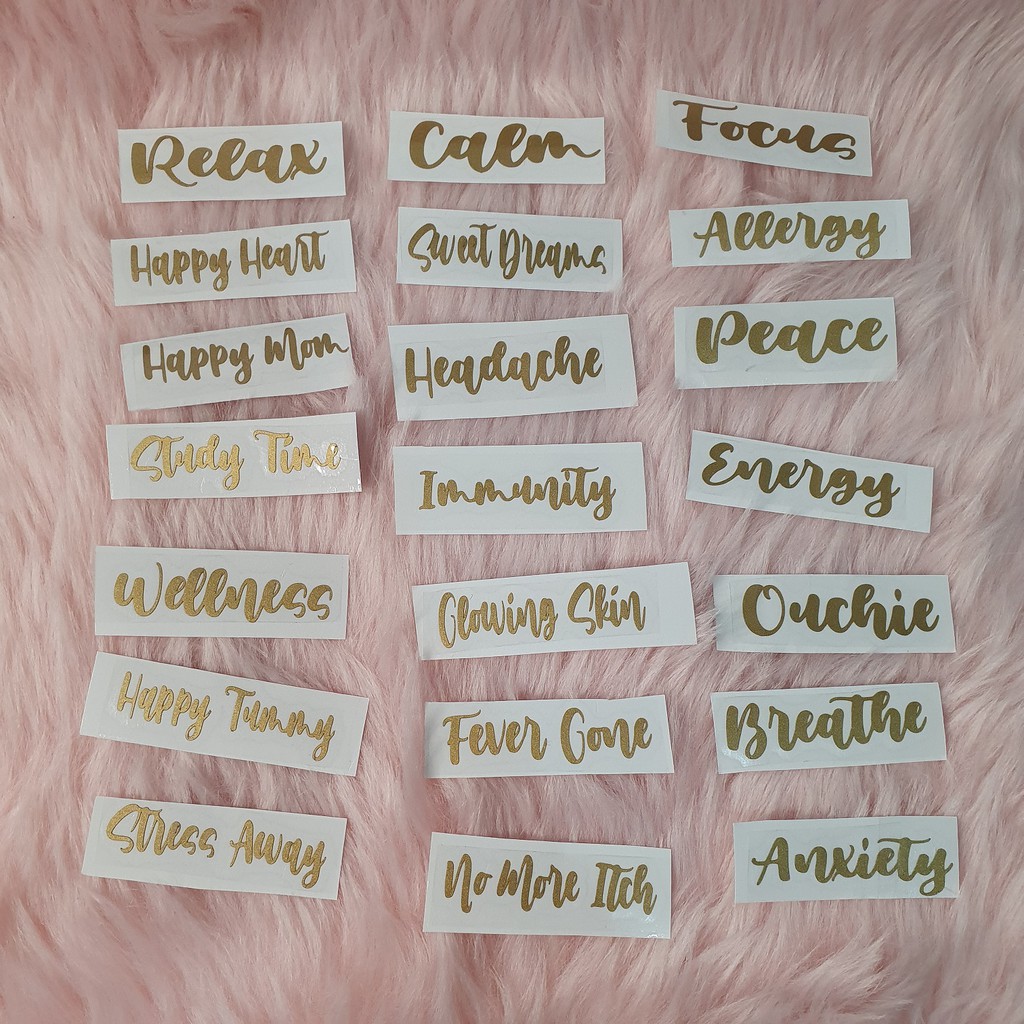 Relax
Calm
Focus
Happy Heart
Sweet Dreams
Allergy
Happy Mom
Headache
Peace
Study Time
Immunity
Energy
Wellness
Glowing Skin
Ouchie
Happy Tummy
Fever Gone
Breathe
Stress Away
No More Itch
Anxiety